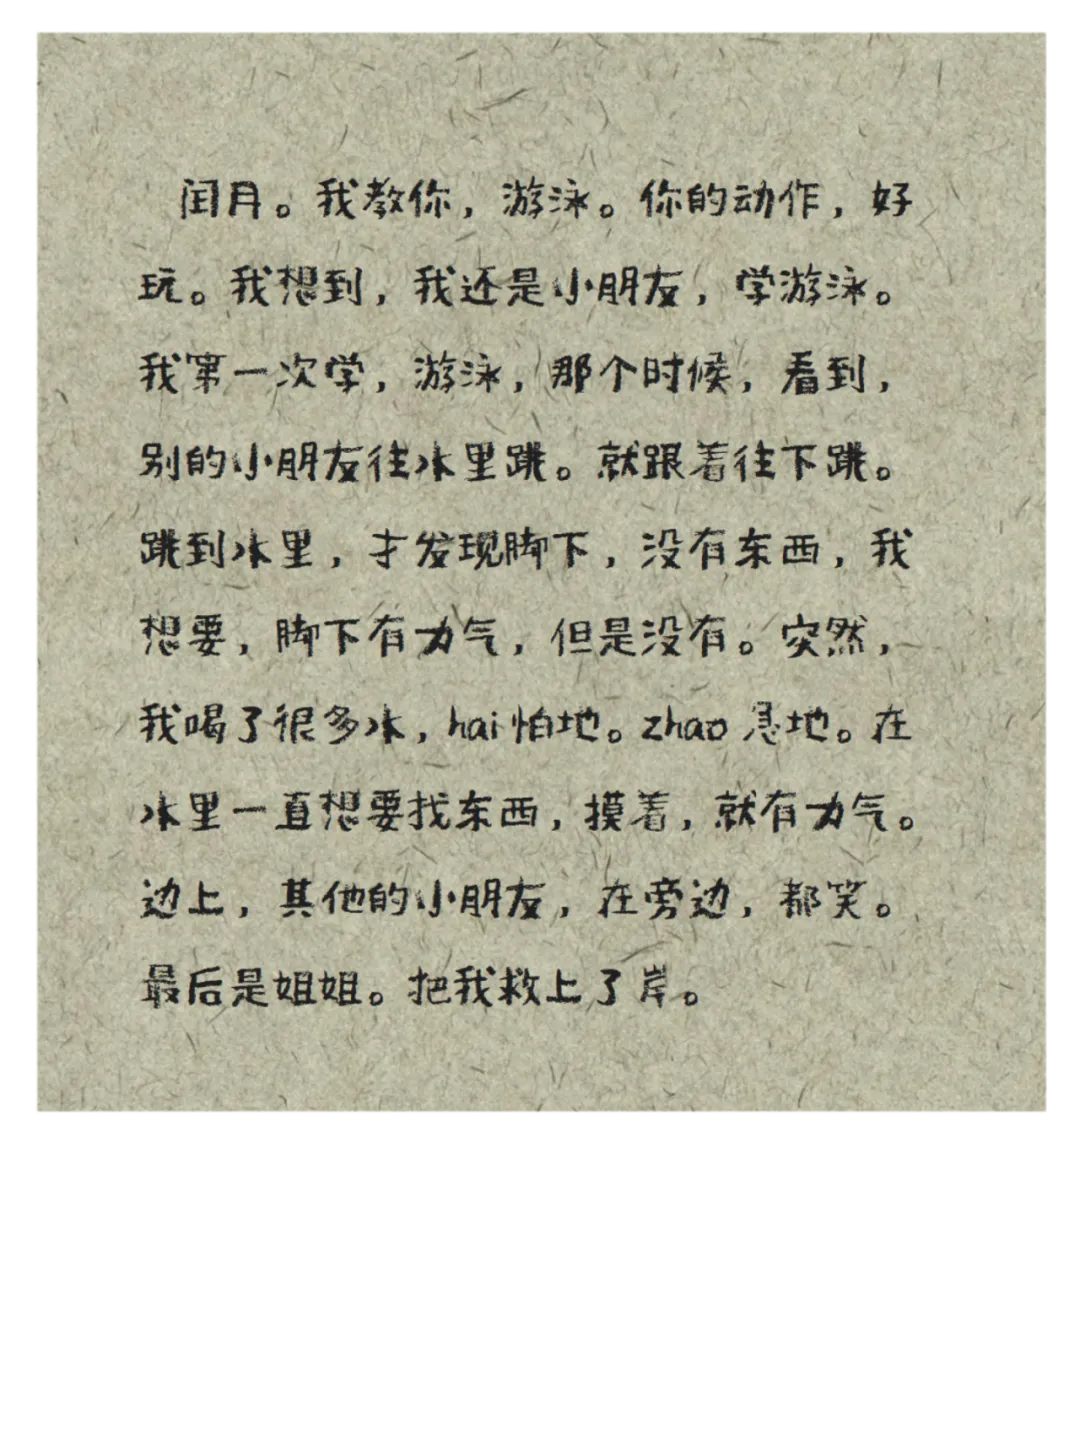 闰月。我教你，游泳。你的动作，好
玩。我想到，我还是小朋友，学游泳。
我第一次学，游泳，那个时候，看到，
别的小朋友往水里跳。就跟着往下跳。
跳到水里，才发现脚下，没有东西，我
想要，脚下有力气，但是没有。突然，
我喝了很多水，hai怕地。zhao急地。在
水里一直想要找东西，摸着，就有力气。
边上，其他的小朋友，在旁边，都笑。
最后是姐姐。把我救上了岸。